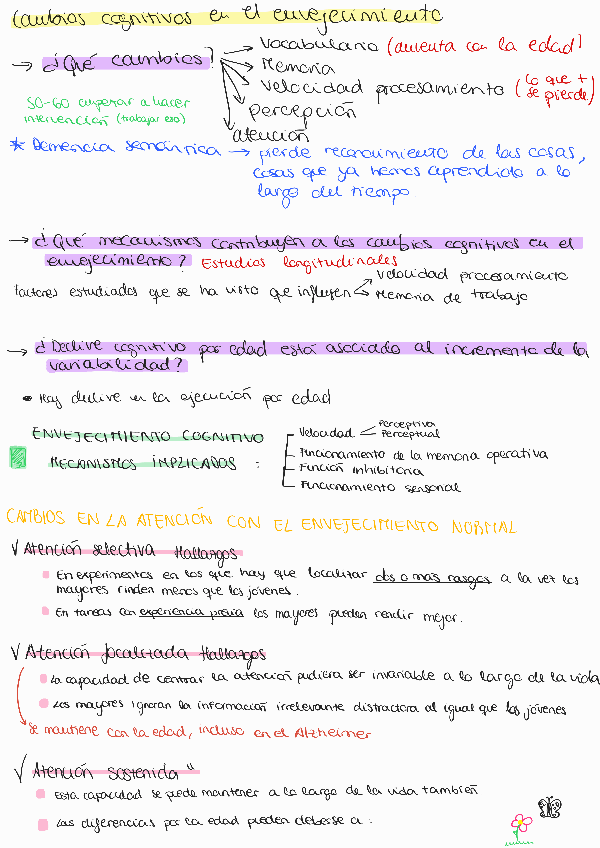 Cambios cognitivos en el envejecimiento
→ ¿Qué cambios?
Vocabulario (aumenta con la edad)
Memoria
Velocidad procesamiento (lo que + se pierde)
percepción
atención
50-60 empezar a hacer
intervención (trabajar eso)
* Demencia semántica → pierde reconocimiento de las cosas,
cosas que ya hemos aprendido a lo
largo del tiempo
→ ¿Qué mecanismos contribuyen a los cambios cognitivos en el
envejecimiento? Estudios longitudinales
factores estudiados que se ha visto que influyen
Velocidad procesamiento
Memoria de trabajo
→ ¿Declive cognitivo por edad está asociado al incremento de la
variabilidad?
• Hay declive en la ejecución por edad
ENVEJECIMIENTO COGNITIVO
MECANISMOS IMPLICADOS :
Velocidad
Perceptiva
Perceptual
Funcionamiento de la memoria operativa
Función inhibitoria
Funcionamiento sensorial
CAMBIOS EN LA ATENCIÓN CON EL ENVEJECIMIENTO NORMAL
√ Atención selectiva Hallazgos
En experimentos en los que hay que localizar dos o más rasgos a la vez los
mayores rinden menos que los jóvenes.
En tareas con experiencia previa los mayores pueden rendir mejor.
√ Atención focalizada Hallazgos
La capacidad de centrar la atención pudiera ser invariable a lo largo de la vida
Los mayores ignoran la información irrelevante distractora al igual que los jóvenes
se mantiene con la edad, incluso en el Alzheimer
√ Atención sostenida "
Esta capacidad se puede mantener a lo largo de la vida también
Las diferencias por la edad pueden deberse a :